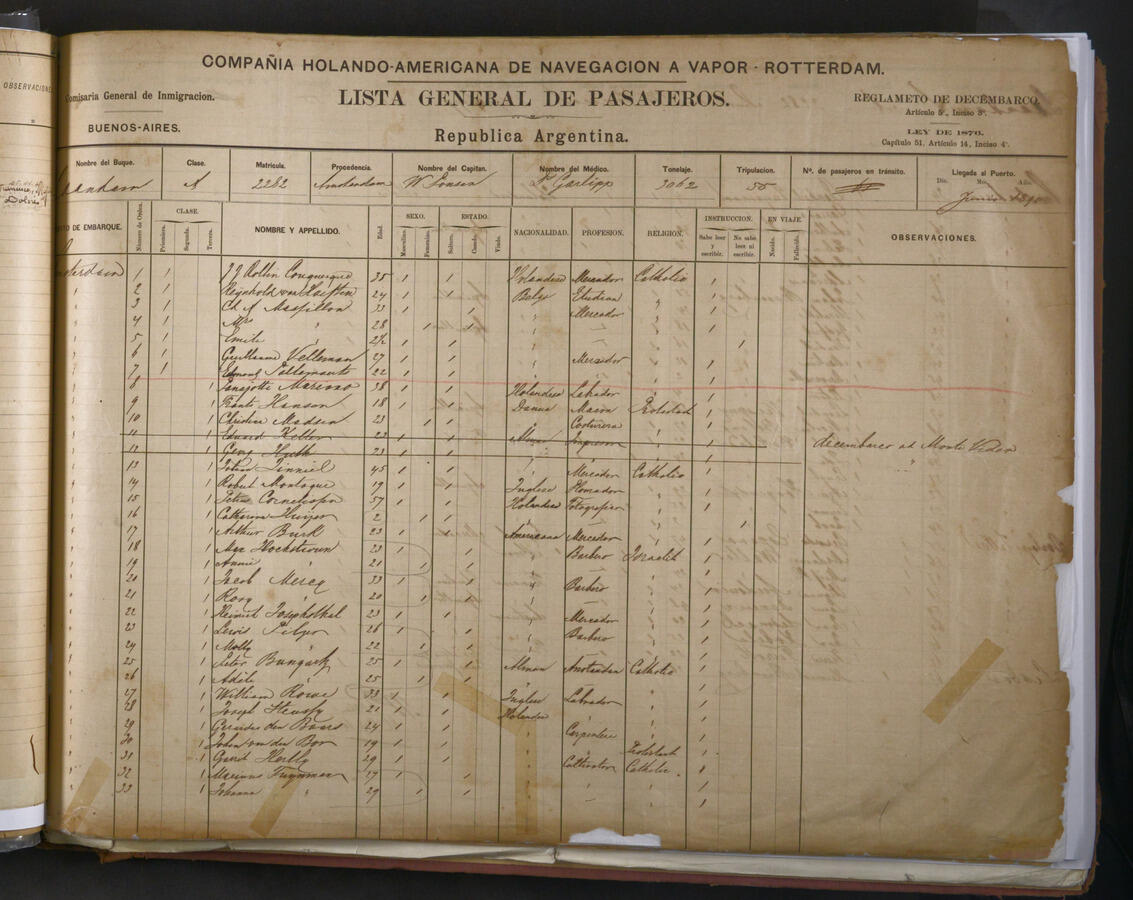 OBSERVACIONE
COMPAÑIA HOLANDO-AMERICANA DE NAVEGACION A VAPOR - ROTTERDAM.
Comisaria General de Inmigracion.
BUENOS-AIRES.
LISTA GENERAL DE PASAJEROS.
Republica Argentina.
REGLAMETO DE DECEMBARCO.
Artículo 5º, Inciso 3º.
LEY DE 1876.
Capítulo 51, Artículo 14, Inciso 4º.
Nombre del Buque. Clase. Matricula. Procedencia. Nombre del Capitan. Nombre del Médico. Tonelaje. Tripulacion. Nº. de pasajeros en tránsito. Llegada al Puerto.
Dia. Mes. Año.
A 2282 Amsterdam W Jonsen Garlipp 3062 55 Junio 1890
TO DE EMBARQUE. Número de Orden. CLASE. Primiera. Segunda. Tercera. NOMBRE Y APPELLIDO. Edad. SEXO. Masculino. Femenino. ESTADO. Soltero. Casado. Viudo. NACIONALIDAD. PROFESION. RELIGION. INSTRUCCION. Sabe leer y escribir. No sabe leer ni escribir. EN VIAJE. Nacido. Fallecido. OBSERVACIONES.
1 1 J J Rollin Couquerque 35 1 1 Holandese Mercador Catholio 1
" 2 1 Reynhold von 24 1 1 Belge Etudian " 1
" 3 1 Ch J Massillon 33 1 1 " Mercador " 1
" 4 1 Mrs " 28 1 1 " — " 1
" 5 1 Emile 1 1 " — 1
" 6 1 Guilliaume Velleman 27 1 1 " Mercador " 1
" 7 1 Edmond 22 1 1 " " " 1
" 8 1 Marcoso 38 1 1 Holandese Labrador " 1
" 9 1 Frants Hanson 18 1 1 Danna Mason Protestad 1
" 10 1 Christine Madsen 23 1 1 " Costurera " 1
" 11 1 Eduard Keller 23 1 1 Alman " 1 decembarco at Monte Video
" 12 1 Georg Huth 23 1 1 " " " 1 "
" 13 1 Johan 45 1 1 " Mercador Catholio 1
" 14 1 Robert Montague 19 1 1 Inglese " 1
" 15 1 Petrus Cornelissen 57 1 1 Holandese Fotografier " 1
" 16 1 Catharina Huizer 2 1 1 " — " 1
" 17 1 Arthur Burk 23 1 1 Americana Mercador " 1
" 18 1 Hochstewn 23 1 1 " Barbero Israelit 1
" 19 1 Annie " 21 1 1 " — " 1
" 20 1 Jacob Mercq 33 1 1 " Barbero " 1
" 21 1 Rosy " 20 1 1 " — " 1
" 22 1 Heinrich Josephsthal 23 1 1 " Mercador " 1
" 23 1 Lewis Pilger 26 1 1 " Barbero " 1
" 24 1 Molly " 22 1 1 " — " 1
" 25 1 Peter Bungartz 25 1 1 Alman Catholio 1
" 26 1 Adele " 25 1 1 " — " 1
" 27 1 William Rowe 33 1 1 Inglese Labrador " 1
" 28 1 Joseph 21 1 1 Holandse " " 1
" 29 1 Gerardus den Boers 24 1 1 " Carpentere " 1
" 30 1 Johan von den Bor 19 1 1 " " Protestad 1
" 31 1 Gerrit 29 1 1 " Cultivator Catholic 1
" 32 1 Marinus Tuynman 27 1 1 " " " 1
" 33 1 Johanna " 29 1 1 " — " 1